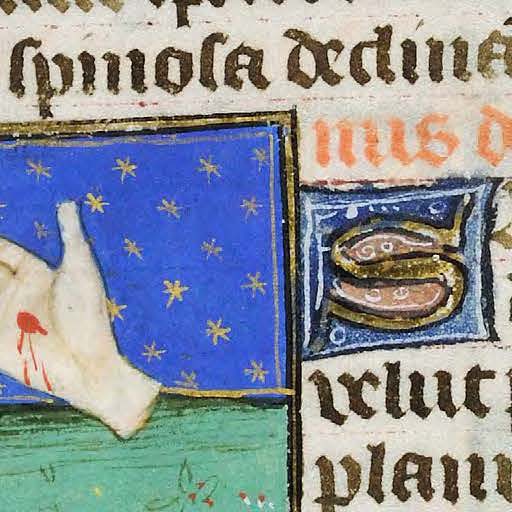 spinosa declina
mus d
S
velut p
plan